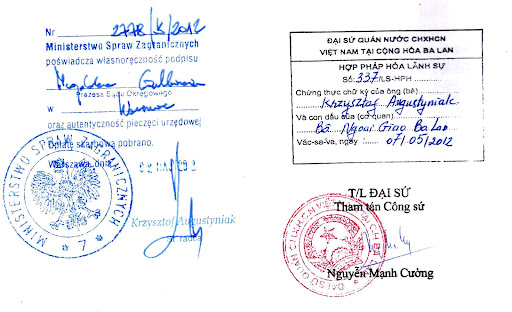 Nr 2778/K/2012
Ministerstwo Spraw Zagranicznych
poświadcza własnoręczność podpisu
Magdalena
Prezesa Sądu Okręgowego
w Warszawie
oraz autentyczność pieczęci urzędowej
Opłatę skarbową pobrano.
Warszawa, dnia
Krzysztof Augustyniak
radca
MINISTERSTWO SPRAW ZAGRANICZNYCH
* 7 *
ĐẠI SỨ QUÁN NƯỚC CHXHCN
VIỆT NAM TẠI CỘNG HÒA BA LAN
HỢP PHÁP HÓA LÃNH SỰ
Số: 337/LS-HPH
Chứng thực chữ ký của ông (bà)
Krzysztof Augustyniak
Và con dấu của (cơ quan)
Bộ Ngoại Giao Ba Lan
Vác-sa-va, ngày 07/05/2012
T/L ĐẠI SỨ
Tham tán Công sứ
ĐẠI SỨ QUÁN CHXHCN VIỆT
Nguyễn Mạnh Cường